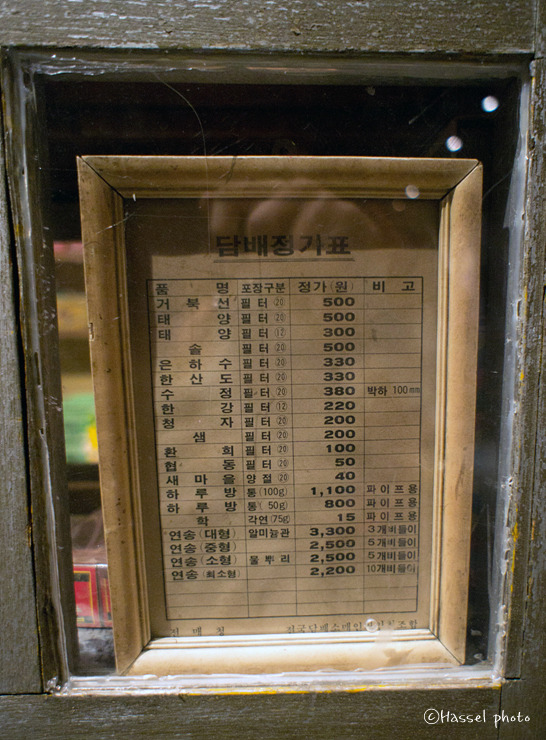 담배정가표
품 명 포장구분 정가(원) 비 고
거북선 필터⑳ 500
태 양 필터⑳ 500
태 양 필터⑫ 300
솔 필터⑳ 500
은하수 필터⑳ 330
한산도 필터⑳ 330
수 정 필터⑳ 380 박하 100mm
한 강 필터⑫ 220
청 자 필터⑳ 200
샘 필터⑳ 200
환 희 필터⑳ 100
협 동 필터⑳ 50
새마을 양절⑳ 40
하루방 통(100g) 1,100 파이프용
하루방 통(50g) 800 파이프용
학 각연(75g) 15 파이프용
연송(대형) 알미늄관 3,300 3개비들이
연송(중형) 2,500 5개비들이
연송(소형) 물뿌리 2,500 5개비들이
연송(최소형) 2,200 10개비들이
전매청 전국담배소매인
©Hassel photo